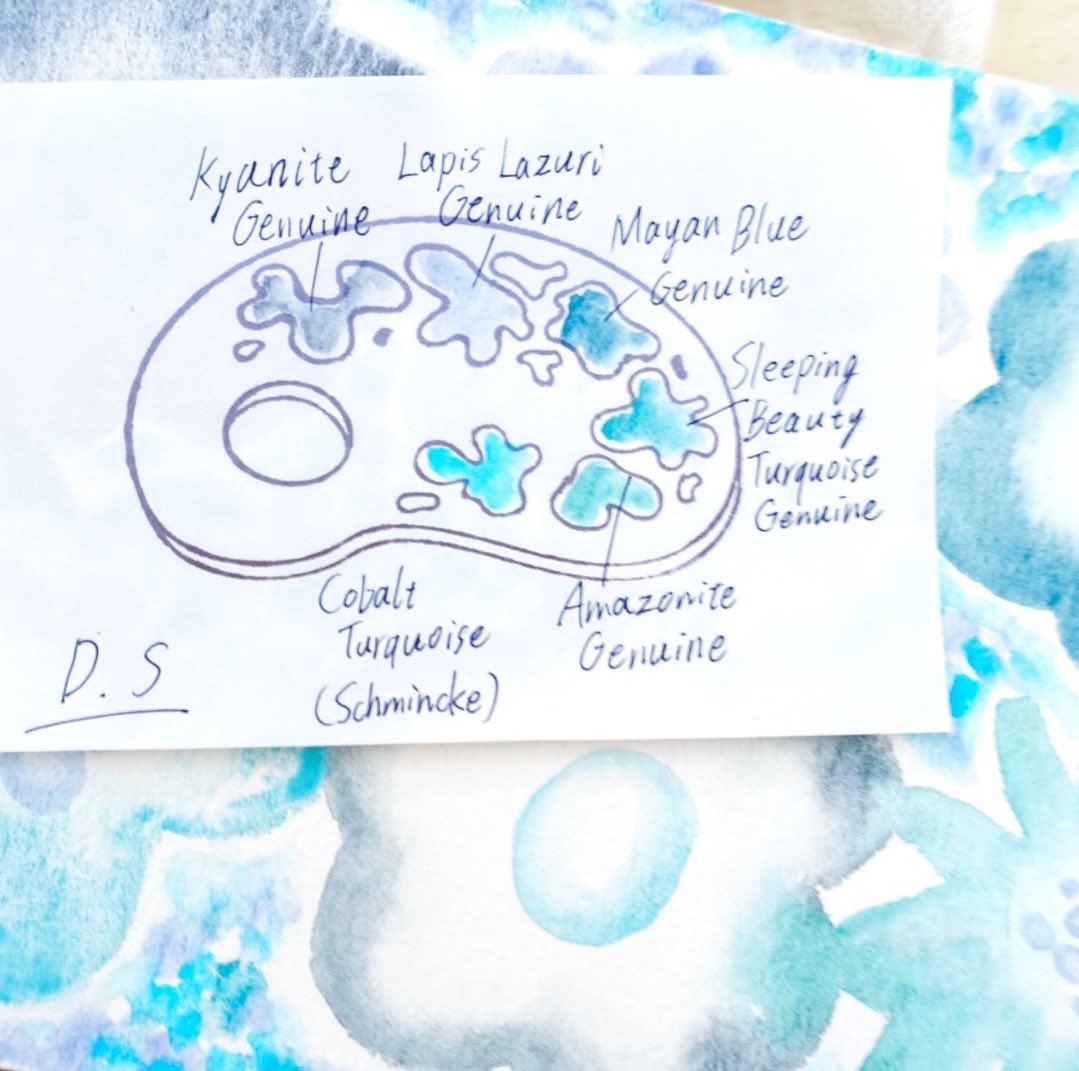 Kyanite
Genuine
Lapis Lazuri
Genuine
Mayan Blue
Genuine
Sleeping
Beauty
Turquoise
Genuine
Cobalt
Turquoise
(Schmincke)
Amazonite
Genuine
D.S